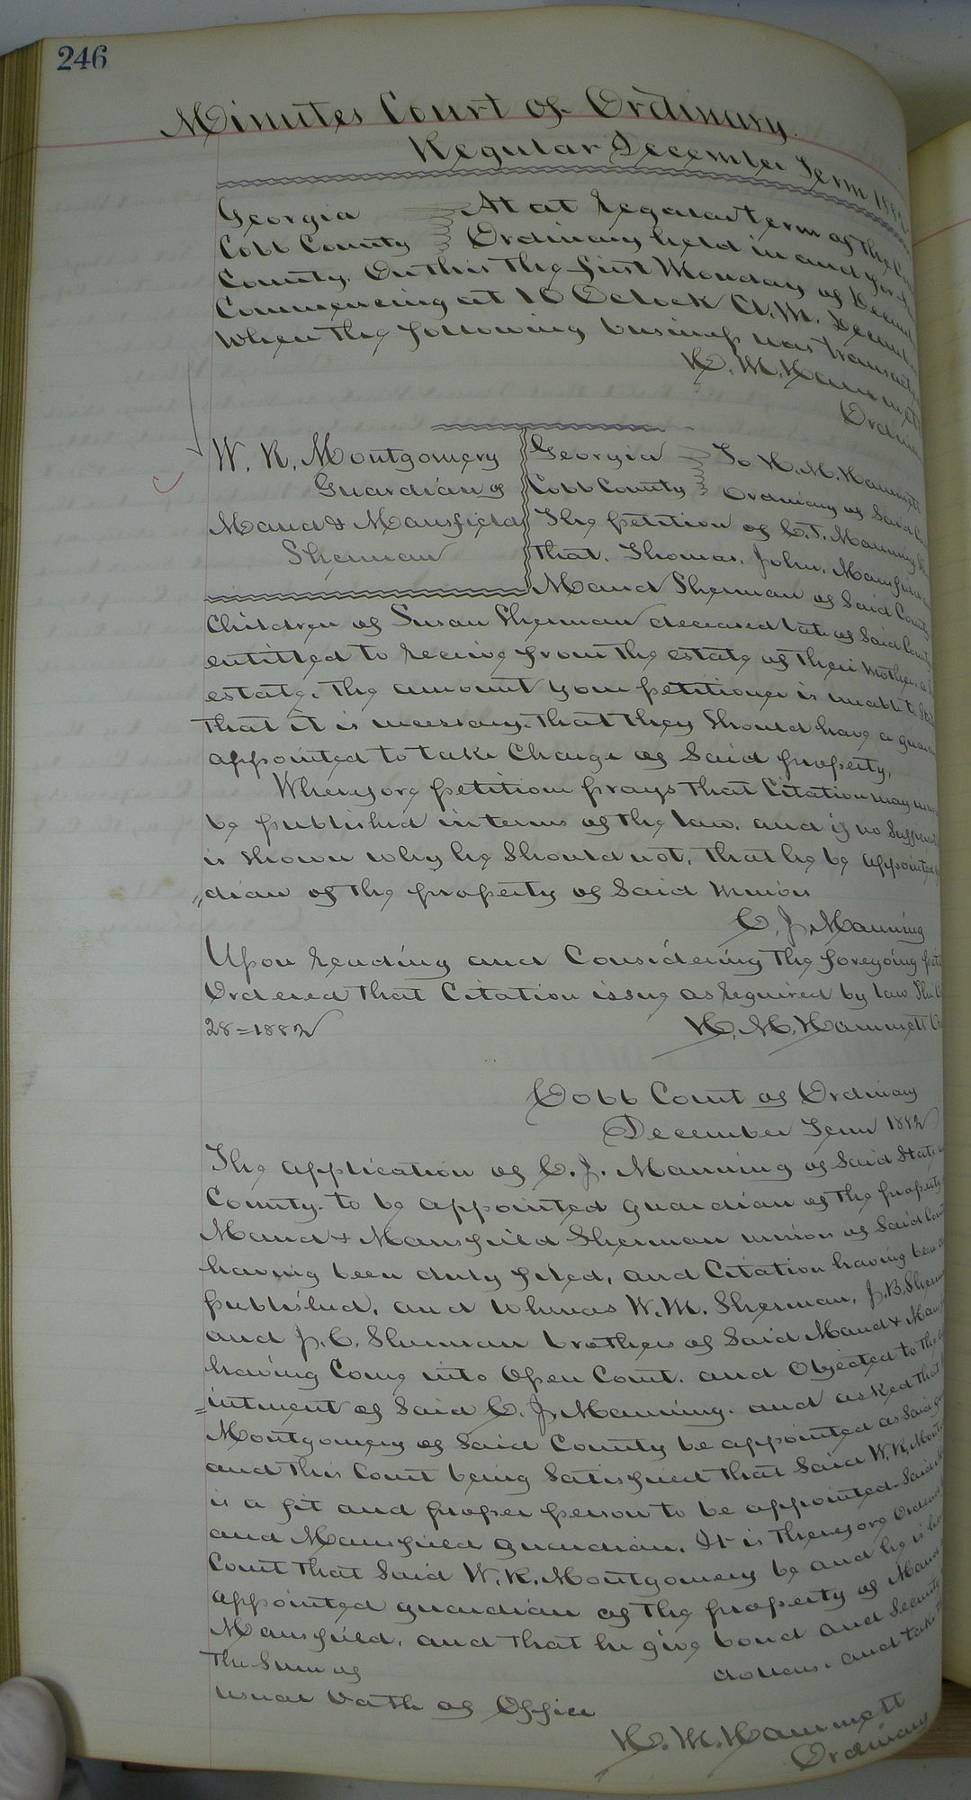 246
Minutes Court of Ordinary
Regular December Term 1882
Georgia At at regular term of the
Cobb County Ordinary held in and for
County. On this the first Monday of
Commencing at 10 Oclock A.M.
When the following business was
H. M. Hammett
W. R. Montgomery
Guardian of
Maud & Mansfield
Sherman
Georgia To H. M. Hammett
Cobb County Ordinary of Said
The petition of C. J. Manning
that. Thomas. John. Mansfield
Maud Sherman of Said County
Children of Susan Sherman deceased late of Said County
entitled to receive from the estate of their mother
estate, the amount your petitioner is unable to
that it is necessary, that they Should have a
appointed to take Charge of Said property,
Wherefore petition prays that Citation may
be published in terms of the law. and if no
is shown why he Should not, that he be appointed
"dian of the property of Said minors
C. J. Manning
Upon reading and Considering the foregoing
Ordered that Citation issue as required by law
28=1882 H. M. Hammett
Cobb Court of Ordinary
December Term 1882
The application of C. J. Manning of Said State
County. to be appointed guardian of the property
Maud & Mansfield Sherman minors of Said
having been duly filed, and Citation having been
published, and whereas W. M. Sherman, J. B.
and J. C. Sherman brothers of Said Maud &
having Come into Open Court. and Objected to the
=intment of Said C. J. Manning. and asked that
Montgomery of Said County be appointed as Said
and this Court being Satisfied that Said W. R.
is a fit and proper person to be appointed Said
and Mansfield guardian. It is Therefore
Court that Said W. R. Montgomery be and he is
appointed guardian of the property of Maud
Mansfield, and that he give bond and Security
The Sum of dollars. and take
usual Oath of Office
H. M. Hammett
Ordinary